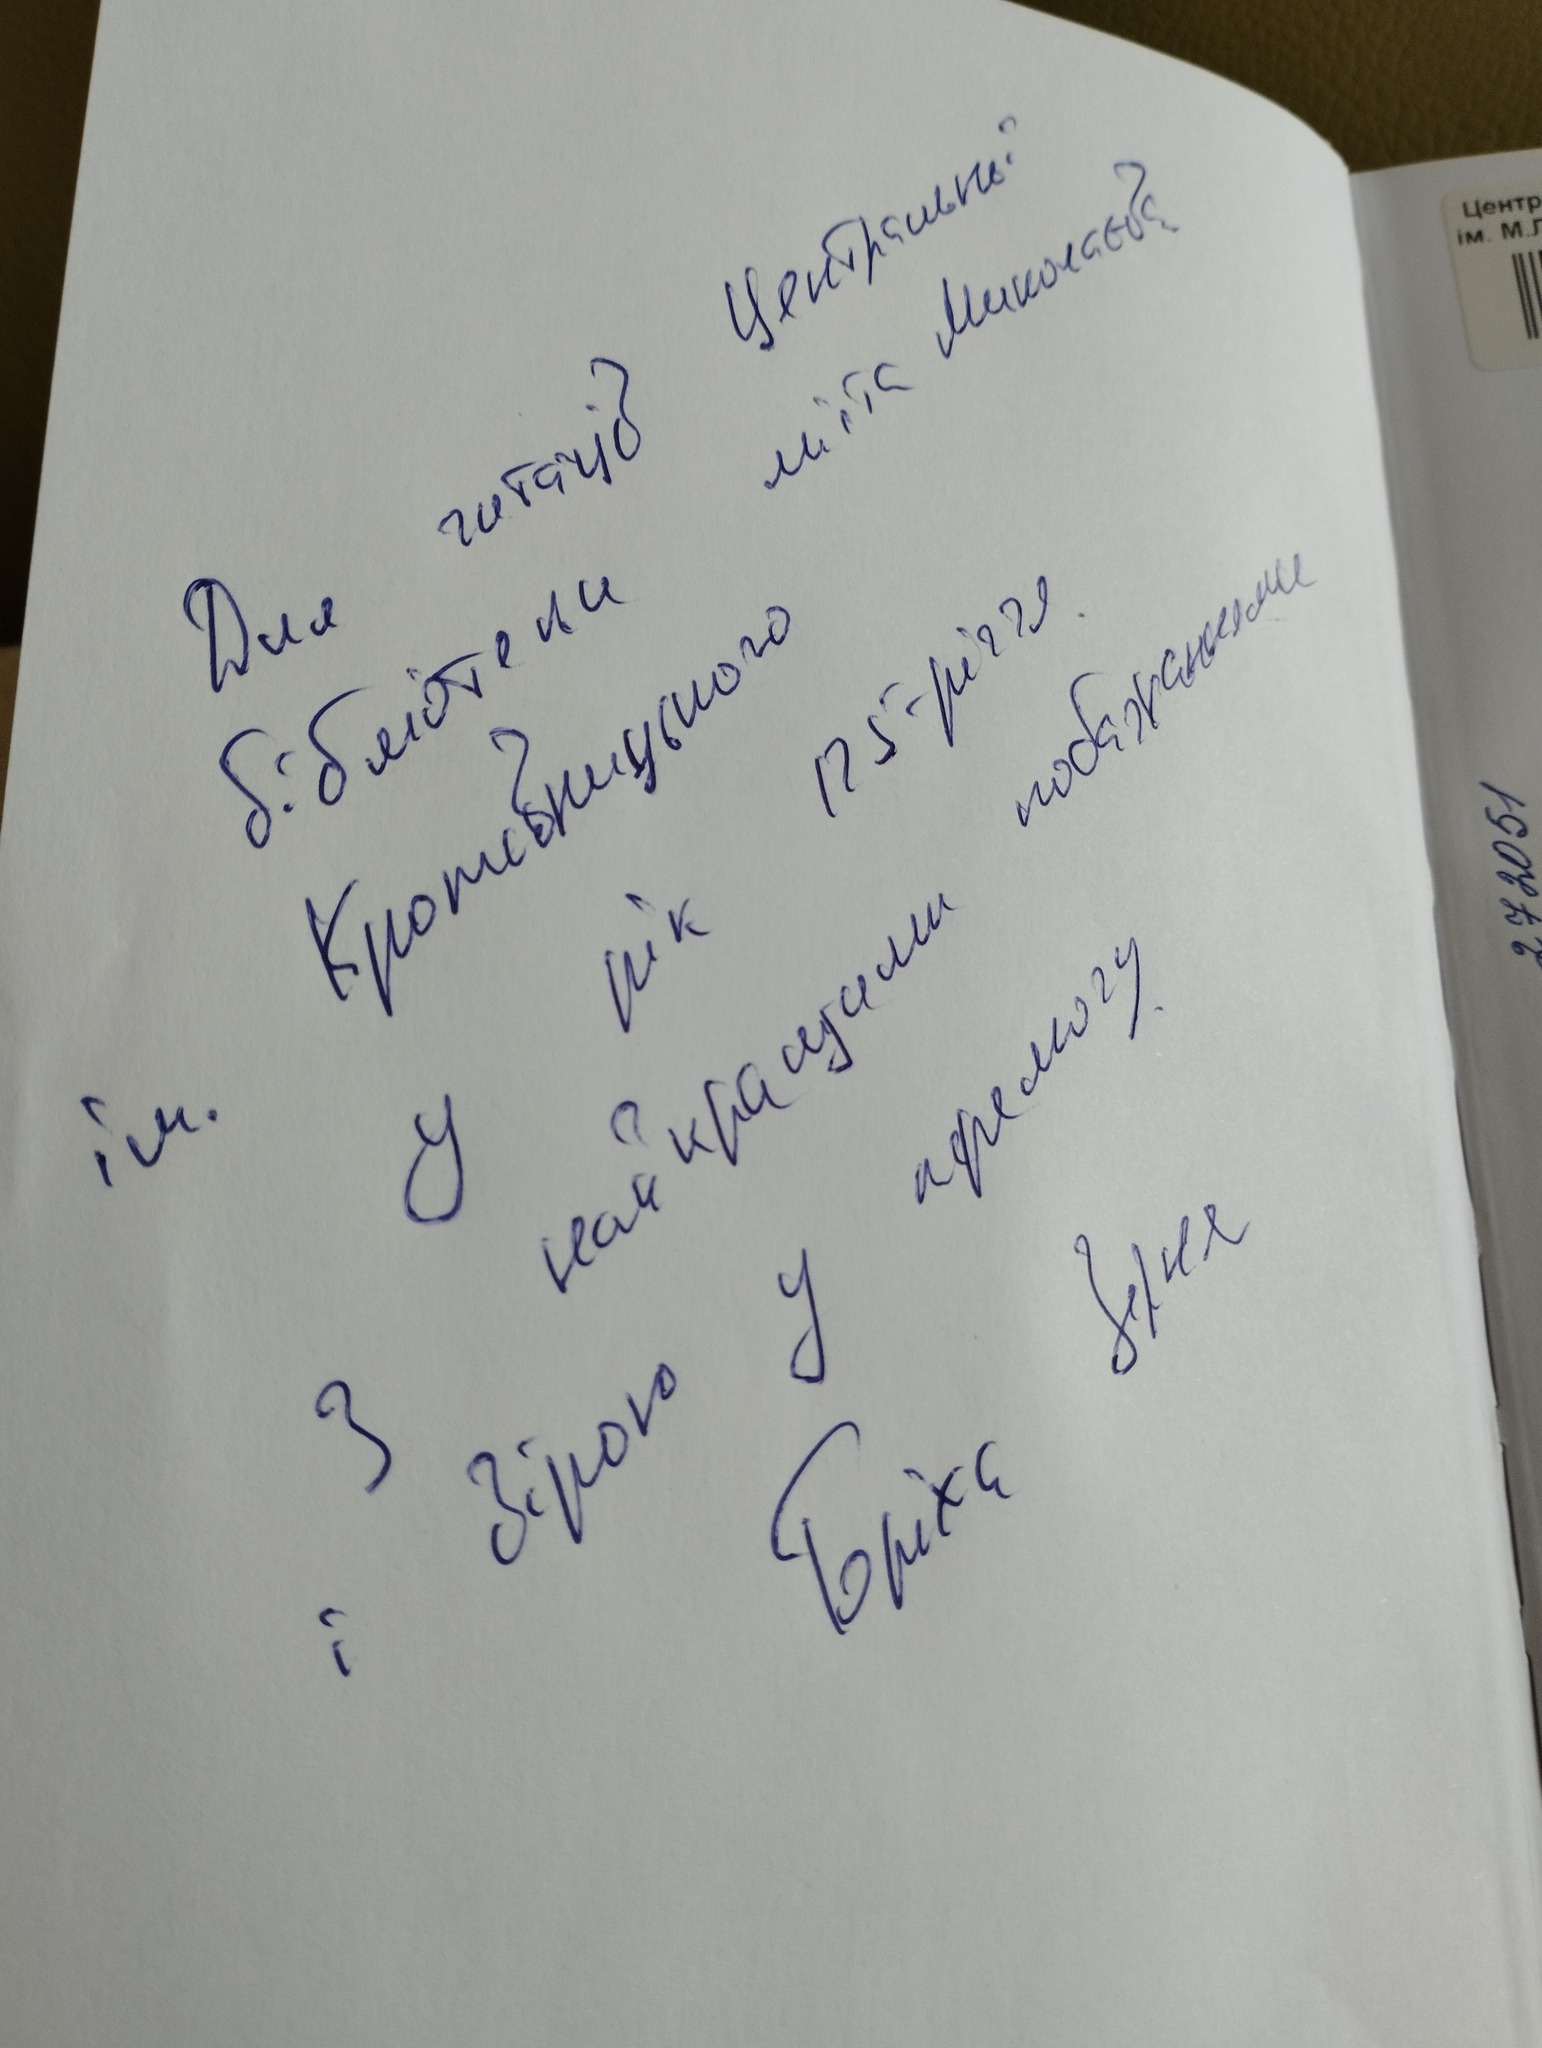 Для читачів Центральні
бібліотеки міста Миколаєва
ім. Кропивницького
у рік 125-річчя.
З найкращими побажаннями
і Вірою у перемогу.
Горіха Зерня
Центр
ім. М.Л
273051